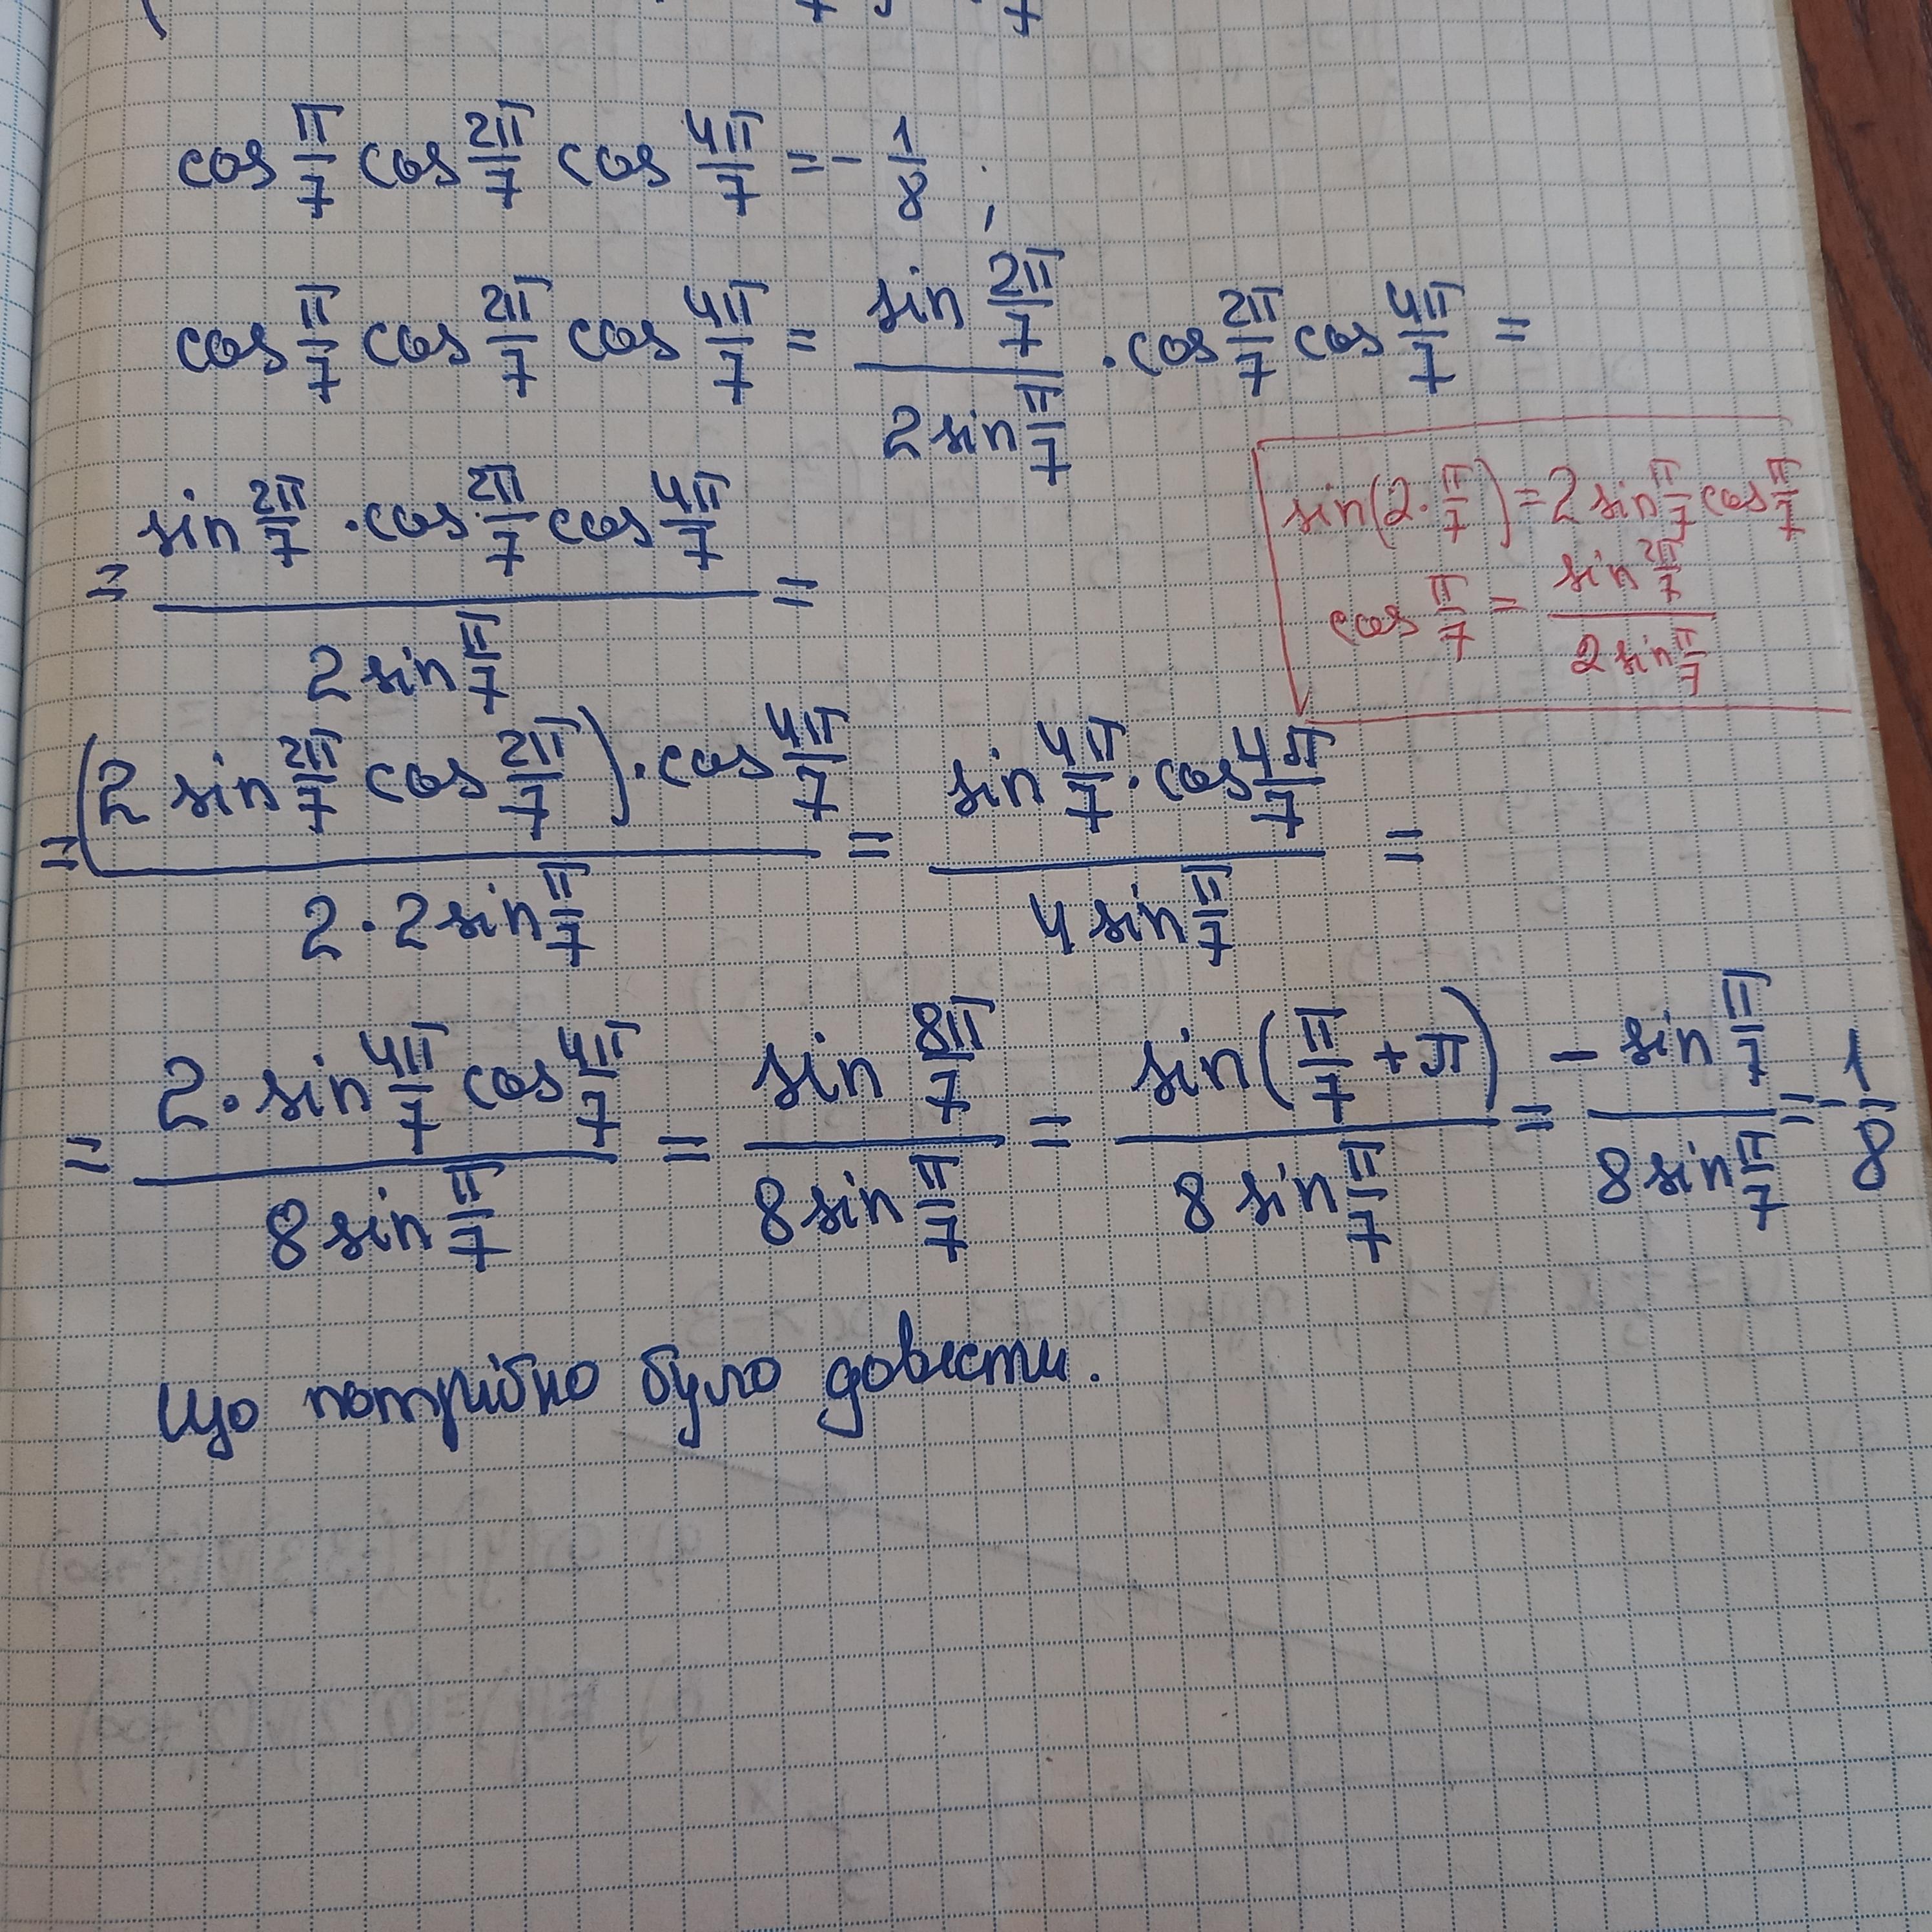 cos π/7 cos 2π/7 cos 4π/7 = - 1/8 ;
cos π/7 cos 2π/7 cos 4π/7 = (sin 2π/7)/(2 sin π/7) · cos 2π/7 cos 4π/7 =
= (sin 2π/7 · cos 2π/7 cos 4π/7)/(2 sin π/7) =
sin(2 · π/7) = 2 sin π/7 cos π/7
cos π/7 = (sin 2π/7)/(2 sin π/7)
= ((2 sin 2π/7 cos 2π/7) · cos 4π/7)/(2 · 2 sin π/7) = (sin 4π/7 · cos 4π/7)/(4 sin π/7) =
= (2 · sin 4π/7 cos 4π/7)/(8 sin π/7) = (sin 8π/7)/(8 sin π/7) = (sin(π/7 + π))/(8 sin π/7) = (- sin π/7)/(8 sin π/7) = - 1/8
Що потрібно було довести.